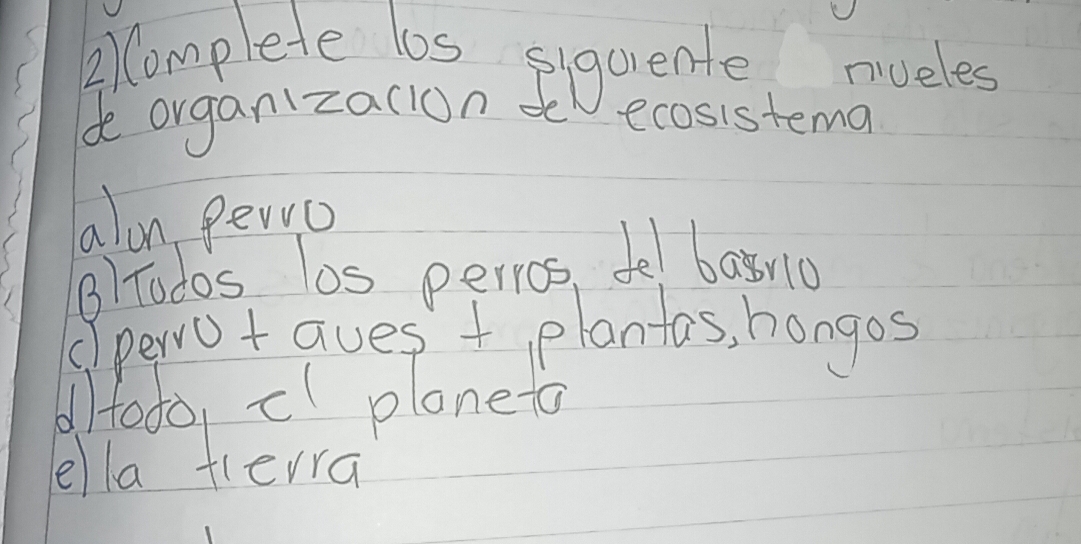 2) Complete los siguiente niveles
de organizacion del ecosistema
a) un perro
B) Todos los perros, del barrio
c) perro + aves + plantas, hongos
d) todo, el planeta
e) la tierra